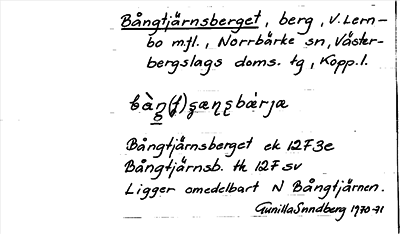 Bångtjärnsberget, berg, V. Lern-
bo m.fl., Norrbärke sn, Väster-
bergslags doms. tg, Kopp.l.
Bångtjärnsberget ek 12F3e
Bångtjärnsb. tk 12F sv
Ligger omedelbart N Bångtjärnen.
Gunilla Sundberg 1970-71